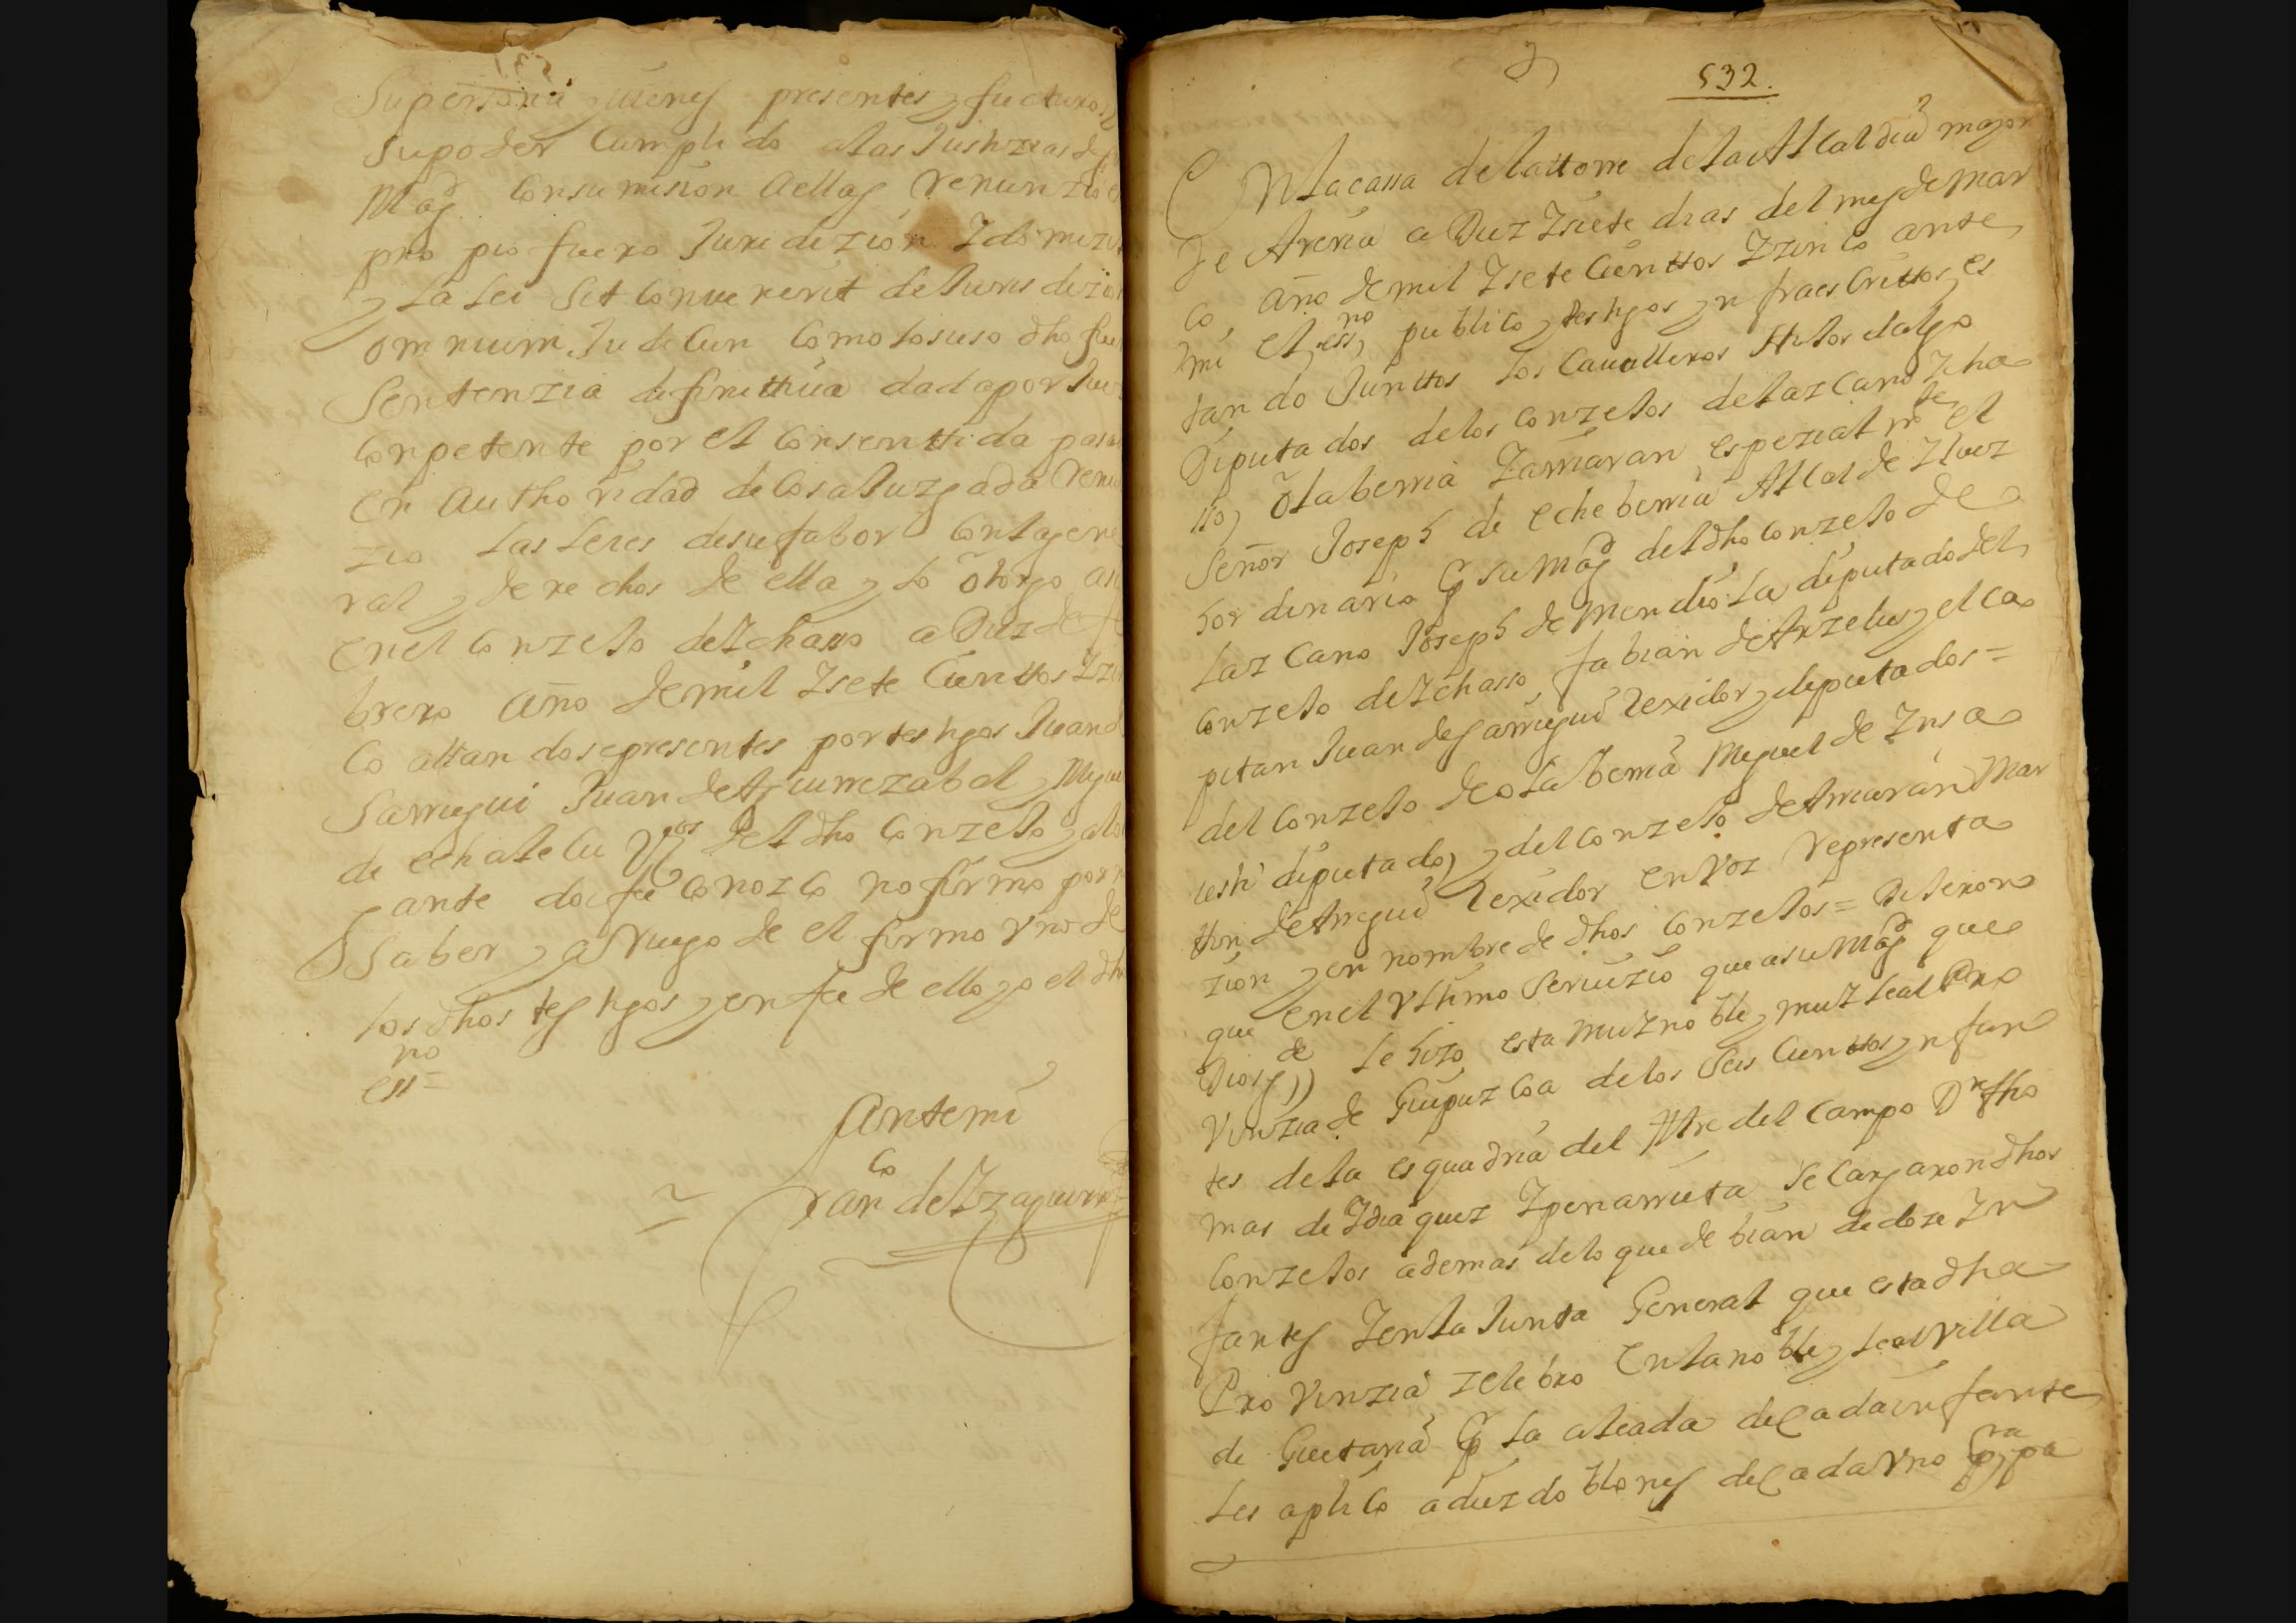 Su persona y vienes presentes y futuros
su poder Cumplido a las Justizias de
Magd Con sumision a ellas renunzio
propio fuero Juridizion Y domizi
y la lei Sit Convenerit de Juris dizion
omnium Judicun Como lo suso dho fue
Sentenzia definitiua dada por Jue
Conpetente por el Consentida pasa
en authoridad de Cosa Juzgada renu
zio las leies de su fabor Con la gene
ral y derechos de ella y lo otorgo asi
en el Conzejo de Ychasso a Diez de fe
brero año de mil Y sete Cienttos Y zin
Co allandose presentes por testigos Juan d
Sarregui Juan de Aguirrezabal y Migue
de echatelu Vzos del dho Conzejo y al o
ante doi fee Conozco no firmo por n
Saber y a su ruego de el firmo Vno de
los dhos testigos y en fee de ello yo el dh
essno
Ante mi
Franco de Yzaguirre
532.
En la cassa de la ttorre de la Alcaldia maior
de Areria a Diez Y siete dias del mes de mar
Co, año de mil Y sete Cienttos Y zinco ante
mi el essno publico y testigos ynfraescrittos, es
tando Junttos los Cavalleros Hijos dalgo
Diputados de los Conzejos de lazcano Ycha
sso, olaberria Y arriaran espezialmte el
Señor Joseph de echeberria Alcalde Y Juez
hordinario P su Magd del dho Conzejo de
Lazcano Joseph de Mendiola diputado del
Conzejo de Ychasso, fabian de Arzelus y el Ca
pitan Juan de Sarregui Rexidor y diputados =
del Conzejo de olaberria Miguel de Ynsa
usti diputado, y del Conzejo de Arriaran Mar
ttin de Arregui Rexidor en Voz representa
zion y en nombre de dhos Conzejos = Dijeron
que en el Vltimo Seruizio que a su Magd que
Dios gde le hizo esta muy noble y muy leal Pro
Vinzia de Guipuzcoa de los Seis Cienttos ynfan
tes de la esquadria del Mre del Campo Dn tho
mas de Ydiaquez Y penarrieta se Cargaron dhos
Conzejos ademas de lo que debian de doze Yn
fantes Y en la Junta General que esta dha
Provinzia zelebro en la noble y leal Villa
de Guetaria P la aleada de Cada infante
les aplico a diez doblones de Cada Vno Pra pa